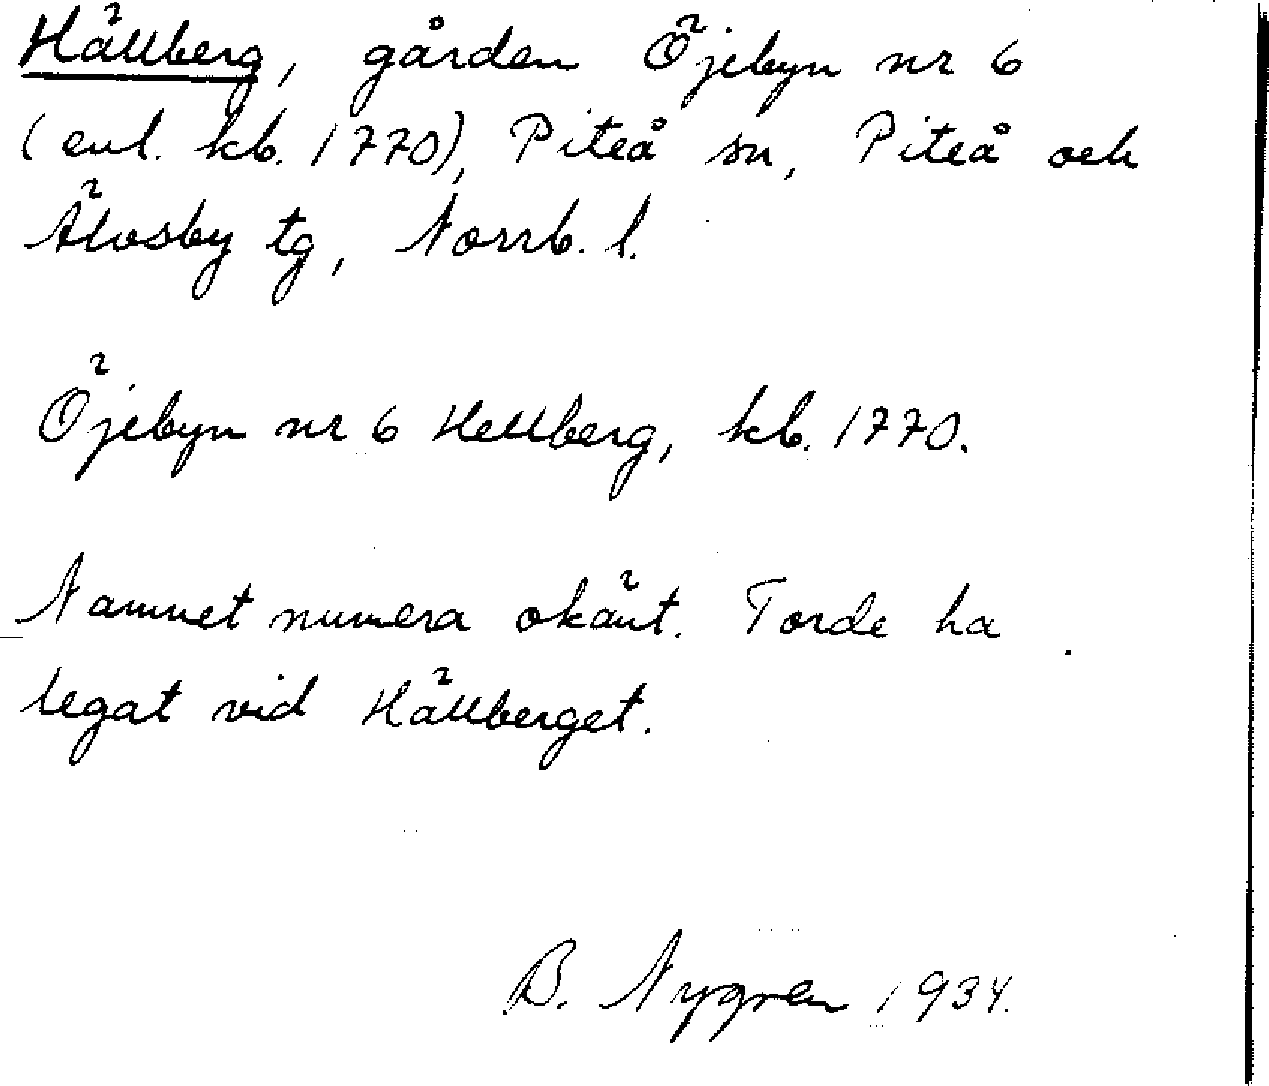 Hällberg, gården Öjebyn nr 6
(enl. kb. 1770), Piteå sn, Piteå och
Älvsby tg, Norrb. l.
Öjebyn nr 6 Hellberg, kb. 1770.
Namnet numera okänt. Torde ha
legat vid Hällberget.
B. Nygren 1934.